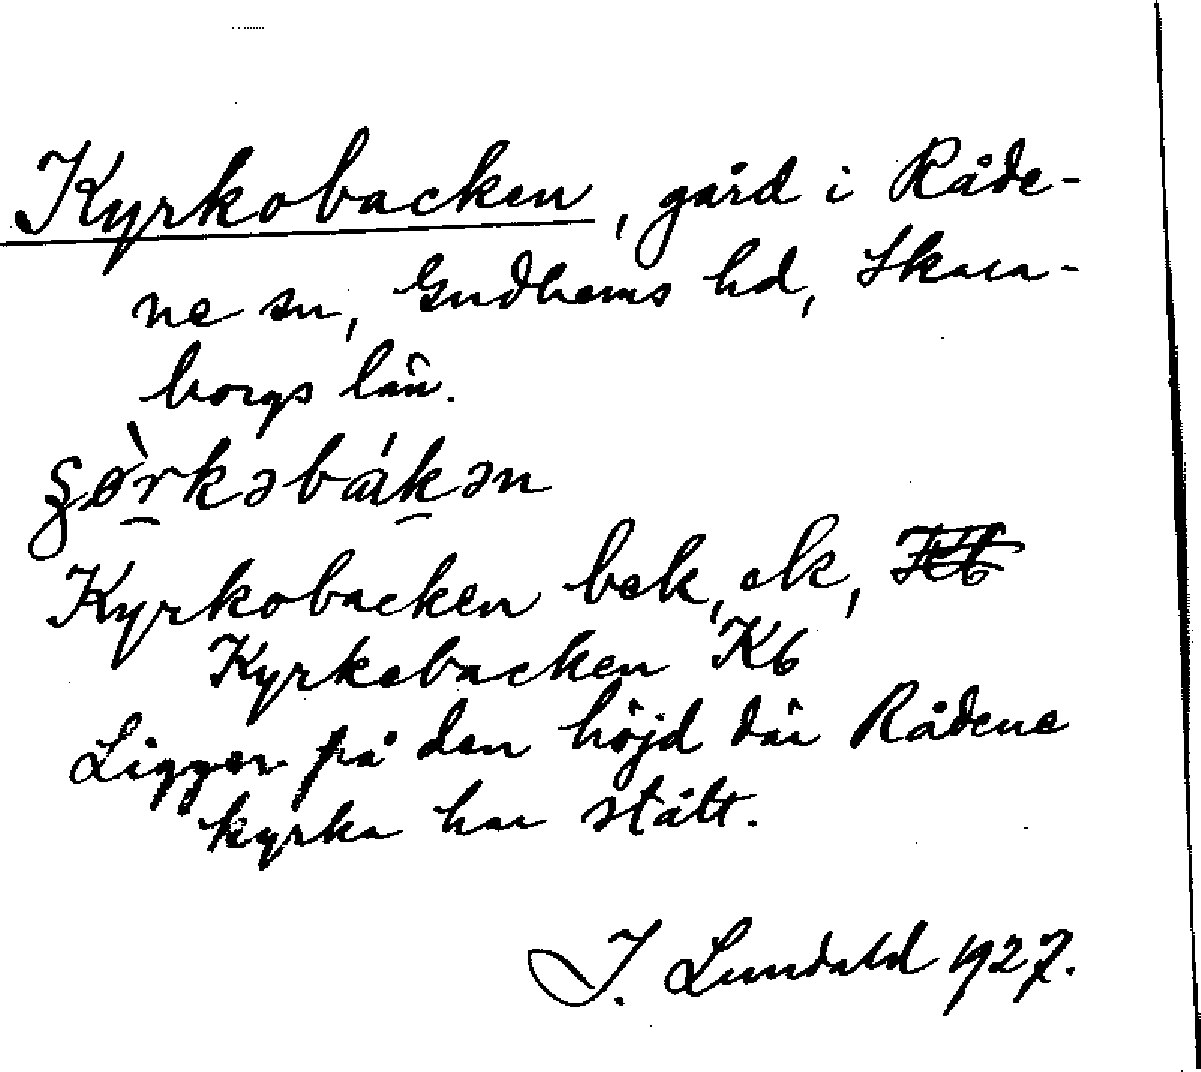 Kyrkobacken, gård i Råde-
ne sn, Gudhems hd, Skara-
borgs län.
Kyrkobacken bek, ek,
Kyrkebacken K6
Ligger på den höjd där Rådene
kyrka har stått.
J. Lundahl 1927.